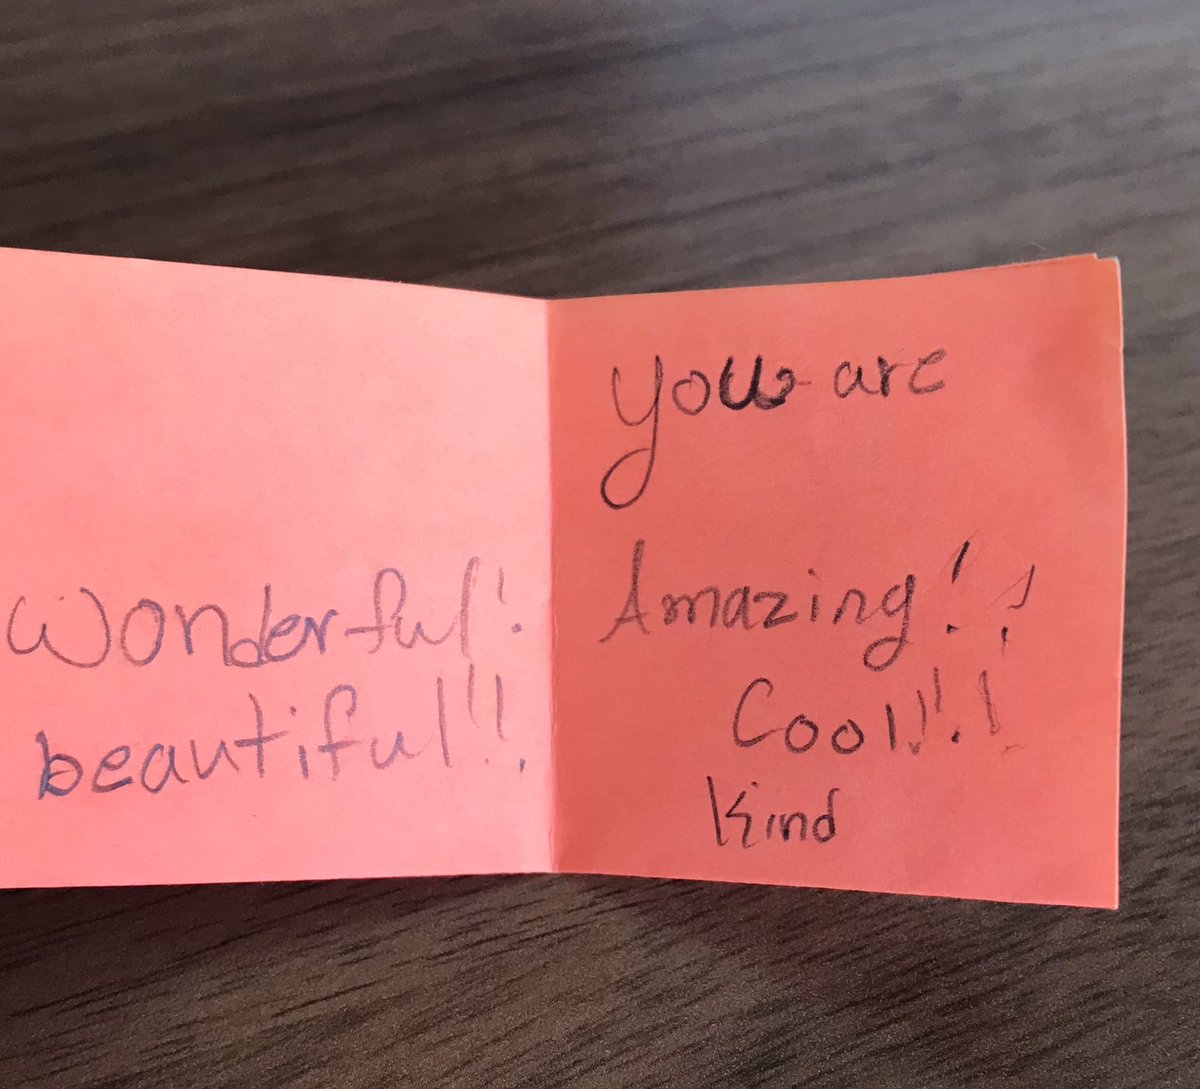 Wonderful!
beautiful!!
you are
Amazing!!
Cool!!!
Kind